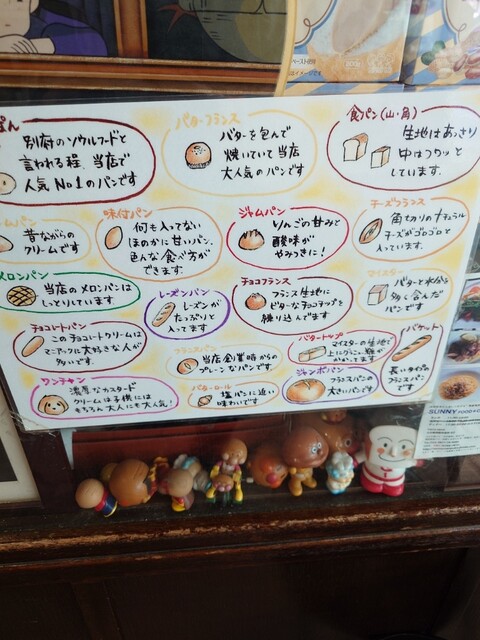 ぱん
別府のソウルフードと
言われる程、当店で
人気No1のパンです
バターフランス
バターを包んで
焼いていて当店
大人気のパンです
食パン(山・角)
生地はあっさり
中はフワッと
しています.
ムパン
昔ながらの
クリームです
味付パン
何も入ってない
ほのかに甘いパン.
色んな食べ方が
できます.
ジャムパン
りんごの甘みと
酸味が
やみつきに!
チーズフランス
角切りのナチュラル
チーズがゴロゴロと
入っています.
メロンパン
当店のメロンパンは
しっとりしています.
レーズンパン
レーズンが
たっぷりと
入ってます
チョコフランス
フランス生地に
ビターなチョコチップを
練り込んでます
マイスター
バターと水分を
多く含んだ
パンです
チョコレートパン
このチョコレートクリームは
マニアックに大好きな人が
多いです.
フランスパン
当店創業時からの
プレーンなパンです.
バタートップ
マイスターの生地で
上にグラニュー糖が
かかってます
バケット
長いタイプの
フランスパン
です
ワンチャン
濃厚なカスタード
クリームは子供には
もちろん大人にも大人気!
バターロール
塩パンに近い
味わいです
ジャンボパン
フランスパンの
大きいパンです
SUNNY